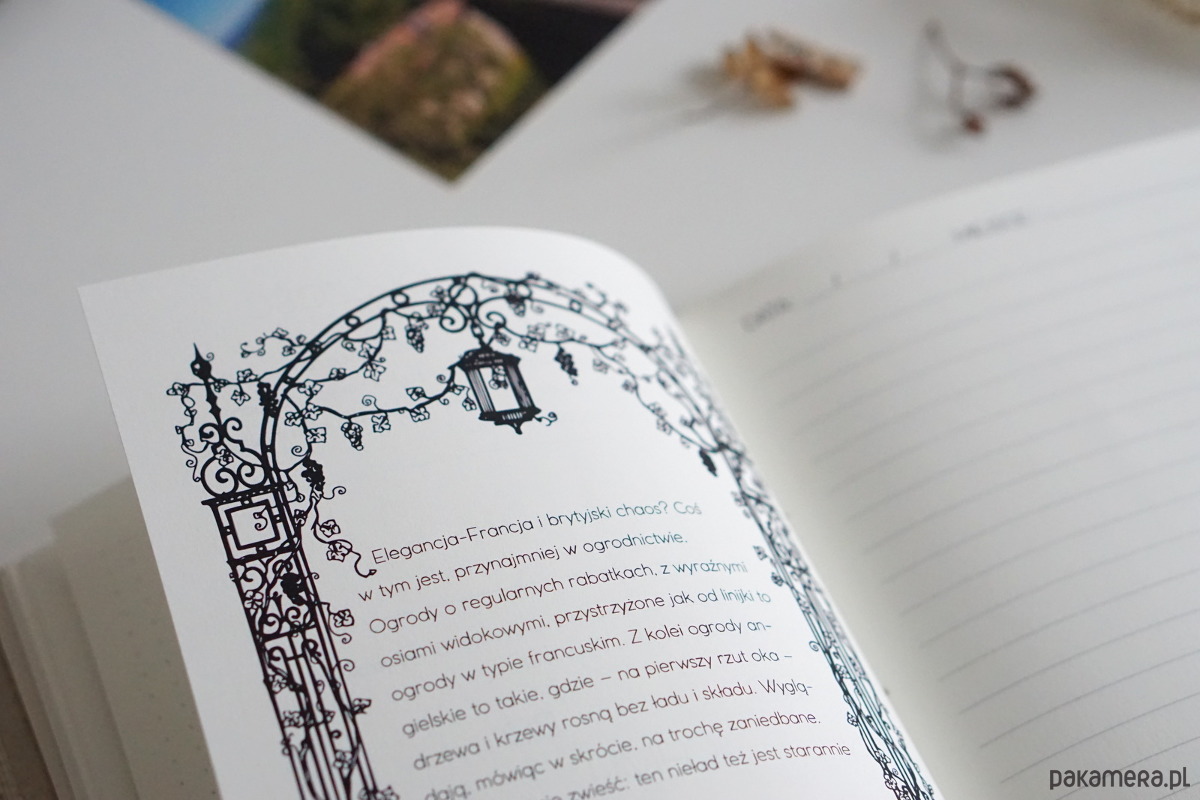 Elegancja-Francja i brytyjski chaos? Coś
w tym jest, przynajmniej w ogrodnictwie.
Ogrody o regularnych rabatkach, z wyraźnymi
osiami widokowymi, przystrzyżone jak od linijki to
ogrody w typie francuskim. Z kolei ogrody an-
gielskie to takie, gdzie – na pierwszy rzut oka –
drzewa i krzewy rosną bez ładu i składu. Wyglą-
dają, mówiąc w skrócie, na trochę zaniedbane.
zwieść: ten nieład też jest starannie
pakamera.pl